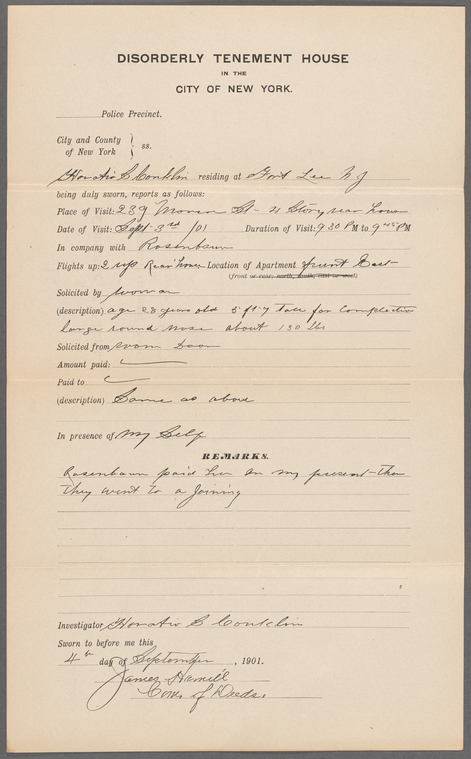 DISORDERLY TENEMENT HOUSE
IN THE
CITY OF NEW YORK.
Police Precinct.
City and County
of New York } ss.
Horatio S Conklin residing at Fort Lee N J
being duly sworn, reports as follows:
Place of Visit: 239 St - 4 Story rear house
Date of Visit: Sept 3rd /01 Duration of Visit: 9 30 PM to 9 PM
In company with Rosenbaum
Flights up: 2 up Rear house Location of Apartment front East
(front or rear: north, south, east or west)
Solicited by woman
(description) age 28 years old 5 ft 7 Tall fair Complection
large round nose about 130 lbs
Solicited from room Door
Amount paid:
Paid to
(description) Same as above
In presence of My Self
REMARKS.
Rosenbaum paid her in my present than
They went to a Joining
Investigator Horatio S Conklin
Sworn to before me this
4th day of September, 1901.
James Hamill
Com. of Deeds.